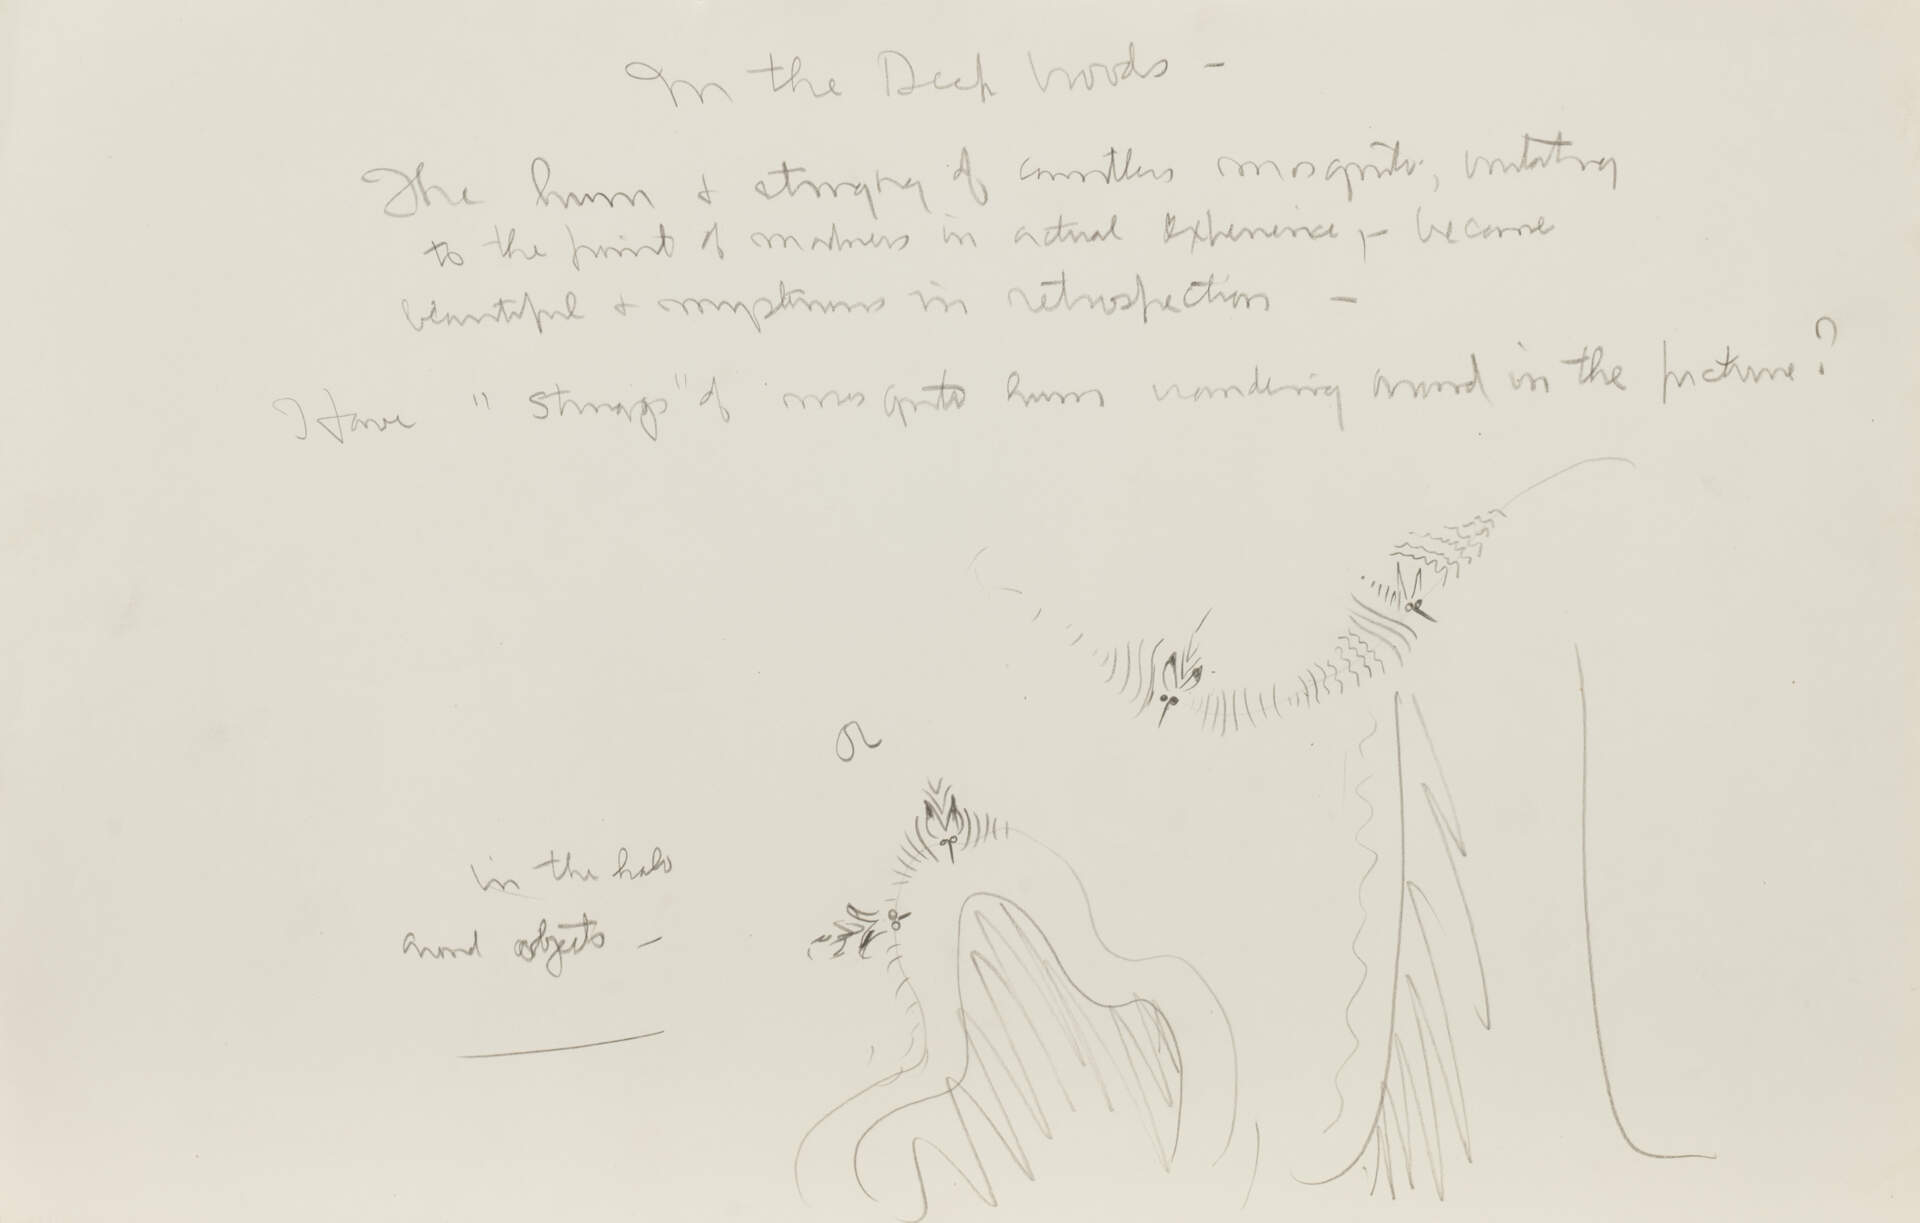 In the Deep Woods —
The hum & stinging of countless mosquito, irritating
to the point of madness in actual experience, — become
beautiful & mysterious in retrospection —
Have "strings" of mosquito hums wandering around in the picture?
or
in the halo
around objects —